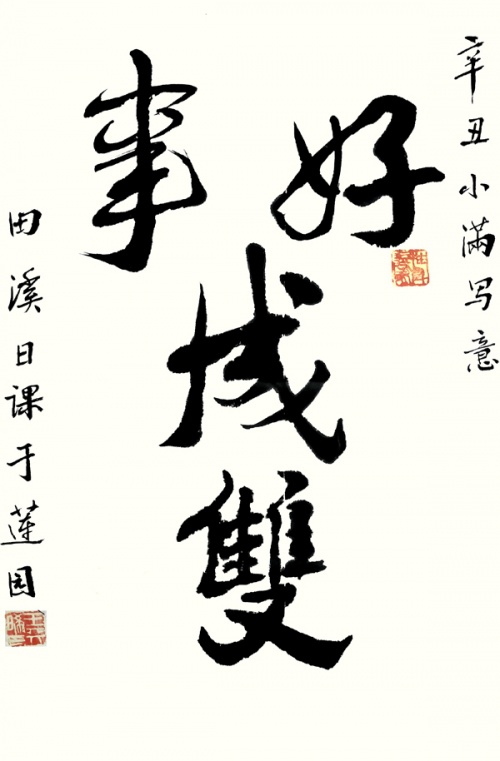 辛丑小满写意
好事
成
雙
田溪日课于蓮园